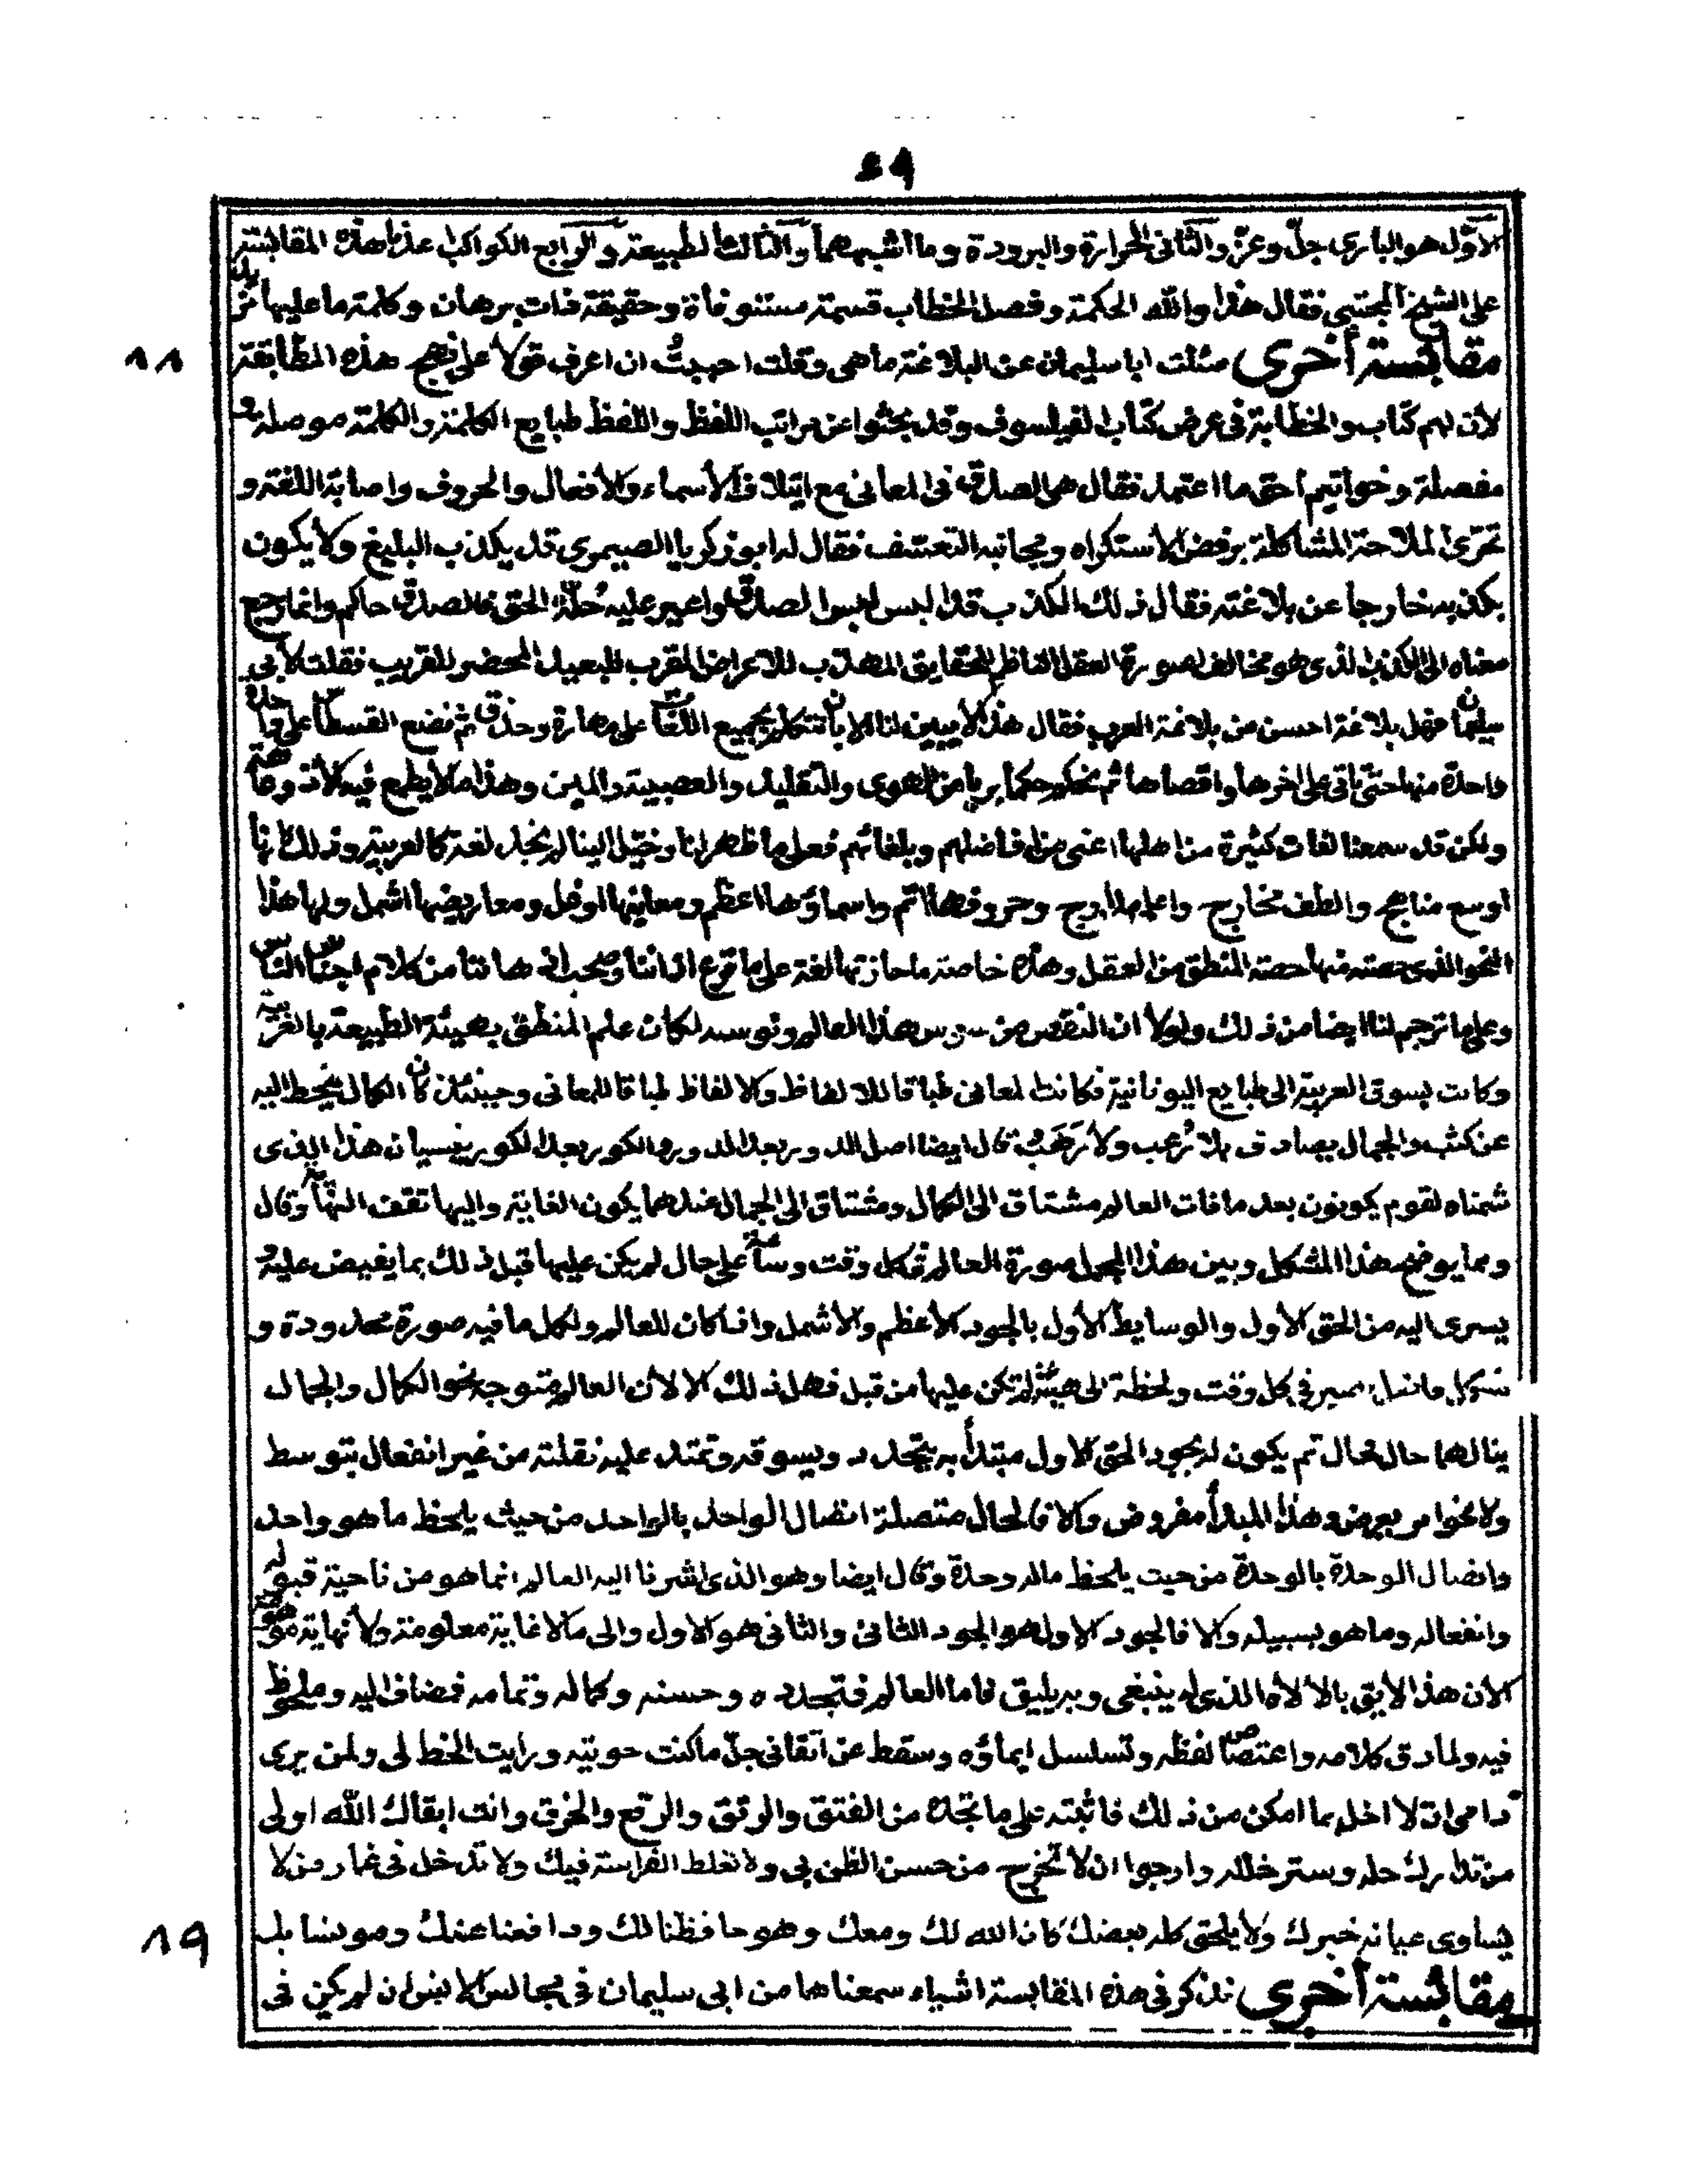 ٤٩
الأوّل هو الباري جلّ وعزّ والثاني الحرارة والبرودة وما أشبههما والثالث الطبيعة والرابع الكواكب هذه المقابسة
على الشيخ المجتبى فقال هذا والله الحكمة وفصل الخطاب قسمة مستوفاة وحقيقة ذات برهان وكلمة ما عليها مزيد
مقابسة أخرى سئلت ابا سليمان عن البلاغة ما هي وقلت احببتُ ان اعرف قولا على نهج هذه المطابقة
١٨
لأن لهم كتاب والخطابة في عرض كتاب الفيلسوف وقد بحثوا عن مراتب اللفظ واللفظ طبايع الكلمة والكلمة موصلة و
مفصلة وخواتيم احق ما اعتمد فقال هي الصدق في المعاني مع ايتلاف الأسماء والأفعال والحروف واصابة اللغة و
تحرى الملاحة المشاكلة برفض الاستكراه ومجانبة التعسف فقال له ابو زكريا الصيمري قد يكذب البليغ ولا يكون
بكذبه خارجا عن بلاغته فقال ذلك الكذب قد البس لبوس الصدق واعير عليه حُلّة الحق فالصدق حاكم وانما رجع
معناه الى الكذب الذي هو مخالف لصورة العقل الناظم للحقايق المهذب للاعراض المقرب للبعيد المحضر للقريب فقلت لأبي
سليمان فهل بلاغة احسن من بلاغة العرب فقال هذا لا يبين لنا الا بأن نتكلم بجميع اللغات على مهارة وحذق ثم نضع القسطاس على واحدة
واحدة منها حتى نأتي على اخرها واقصاها ثم نحكم حكما بريا من الهوى والتقليد والعصبية والمين وهذا ما لا يطمع فيه الا ذو عاهة
ولكن قد سمعنا لغات كثيرة من اهلها اعني من افاضلهم وبلغائهم فعلى ما ظهر لنا وخيّل الينا لم نجد لغة كالعربية وذلك لأنها
اوسع مناهج والطف مخارج واعلى مدارج وحروفها اتم واسماؤها اعظم ومعانيها اوغل ومعاريضها اشمل ولها هذا
النحو الذي حصته منها حصة المنطق من العقل وهذه خاصة ما حازتها لغة على ما قرع اذاننا وصحب اذهاننا من كلام اجناس الناس
وعلى ما ترجم لنا ايضا من ذلك ولولا ان النقص من سوس هذا العالم وتوسه لكان علم المنطق بهيئة الطبيعة بالعربية
وكانت بسوق العربية الى طبايع اليونانية فكانت المعاني طباقا للالفاظ والالفاظ طباقا للمعاني وحينئذ كان الكمال ينحط اليه
عن كثب والجمال يصادف بلا رُعب ولا رَهَب قال ايضا اصل الدور بعد الدور والكور بعد الكور ينسيان هذا الذي
شمناه لقوم يكونون بعد ما فات العالم مشتاق الى الكمال ومشتاق الى الجمال عندهما يكون الغاية واليها تقف النهاية وقال
ومما يوضح هذا المشكل وبين هذا المجمل صورة العالم في كل وقت وساعة على حال لم يكن عليها قبل ذلك بما يفيض عليه و
يسري اليه من الحق الأول والوسايط الأول بالجود الأعظم والأشمل واذا كان للعالم ولكل ما فيه صورة محدودة و
في كل وقت ولحظة الى هيئة لم تكن عليها من قبل فهل ذلك الا لأن العالم متوجه نحو الكمال والجمال
ينالهما حال لحال ثم يكون له بجود الحق الاول مبتدأ به يتجدد ويسوقه وتمتد عليه نقلته من غير انفعال بتوسط
ولا نحوا من وهذا المبدأ مفروض والا فالحال متصلة اتصال الواحد بالواحد من حيث يلحظ ما هو واحد
واتصال الوحدة بالوحدة من حيث يلحظ ماله وحدة وقال ايضا وهو الذي اشرنا اليه العالم انما هو من ناحية قبوله
وانفعاله وما هو بسبيله والا فالجود الاول هو الجود الثاني والثاني هو الاول والى ما لا غاية معلومة ولا نهاية موهومة
الان هذا الايق بالالاه الذي له ينبغي وبه يليق فاما العالم فتجدده وحسنه وكماله وتمامه فمضاف اليه وملحوظ
فيه ولما دق كلامه واعتاص لفظه وتسلسل ايماؤه وسقط عن اتقاني جلّ ما كنت حويته ورايت الخط لي ولمن يرى
ان لا اخل بما امكن من ذلك فاثبته على ما تجده من الفتق والرتق والرقع والخرق وانت ابقاك الله اولى
من تدارك حله وستر خلله وارجوا ان لا تخرج من حسن الظن بي ولا تغلط الفراسة فيك ولا تدخل في غمار من لا
يساوى عيانه خبرك ولا يلحق كله بعضك كان الله لك ومعك وهو حافظنا لك ودافعنا عنك ومونسنا بك
١٩
مقابسة أخرى نذكر في هذه المقابسة اشياء سمعناها من ابي سليمان في مجالس الانس ان لم يكن في